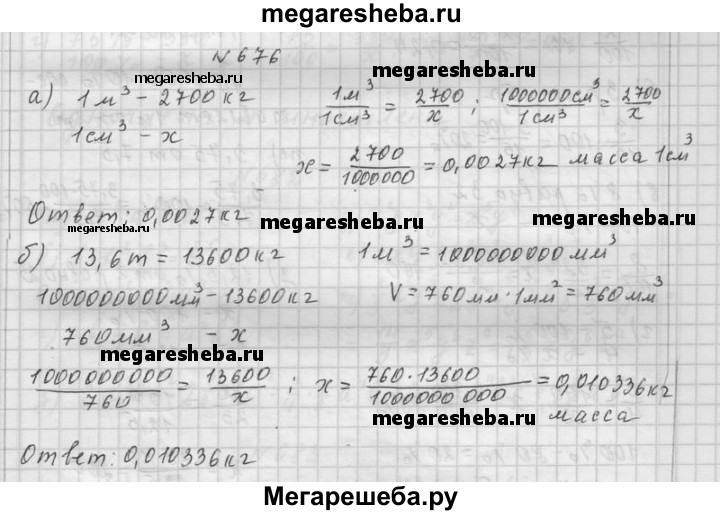 megaresheba.ru
N 676
megaresheba.ru
megaresheba.ru
а) 1 м³ - 2700 кг
1м³/1см³ = 2700/x ; 1000000см³/1см³ = 2700/x
1см³ - x
x = 2700/1000000 = 0,0027кг масса 1см³
Ответ: 0,0027кг
megaresheba.ru
megaresheba.ru
megaresheba.ru
б) 13,6т = 13600кг
1м³ = 1000000000мм³
1000000000мм³ - 13600кг
V = 760мм · 1мм² = 760мм³
760мм³ - x
megaresheba.ru
1000 000 000/760 = 13600/x ; x = 760·13600/1000000 000 = 0,010336кг
масса
megaresheba.ru
megaresheba.ru
Ответ: 0,010336кг
Мегарешеба.ру